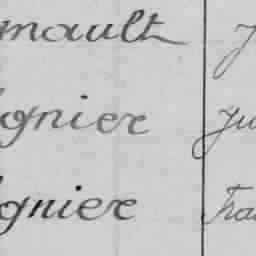 mault J
gnier Ju
gnier Fra